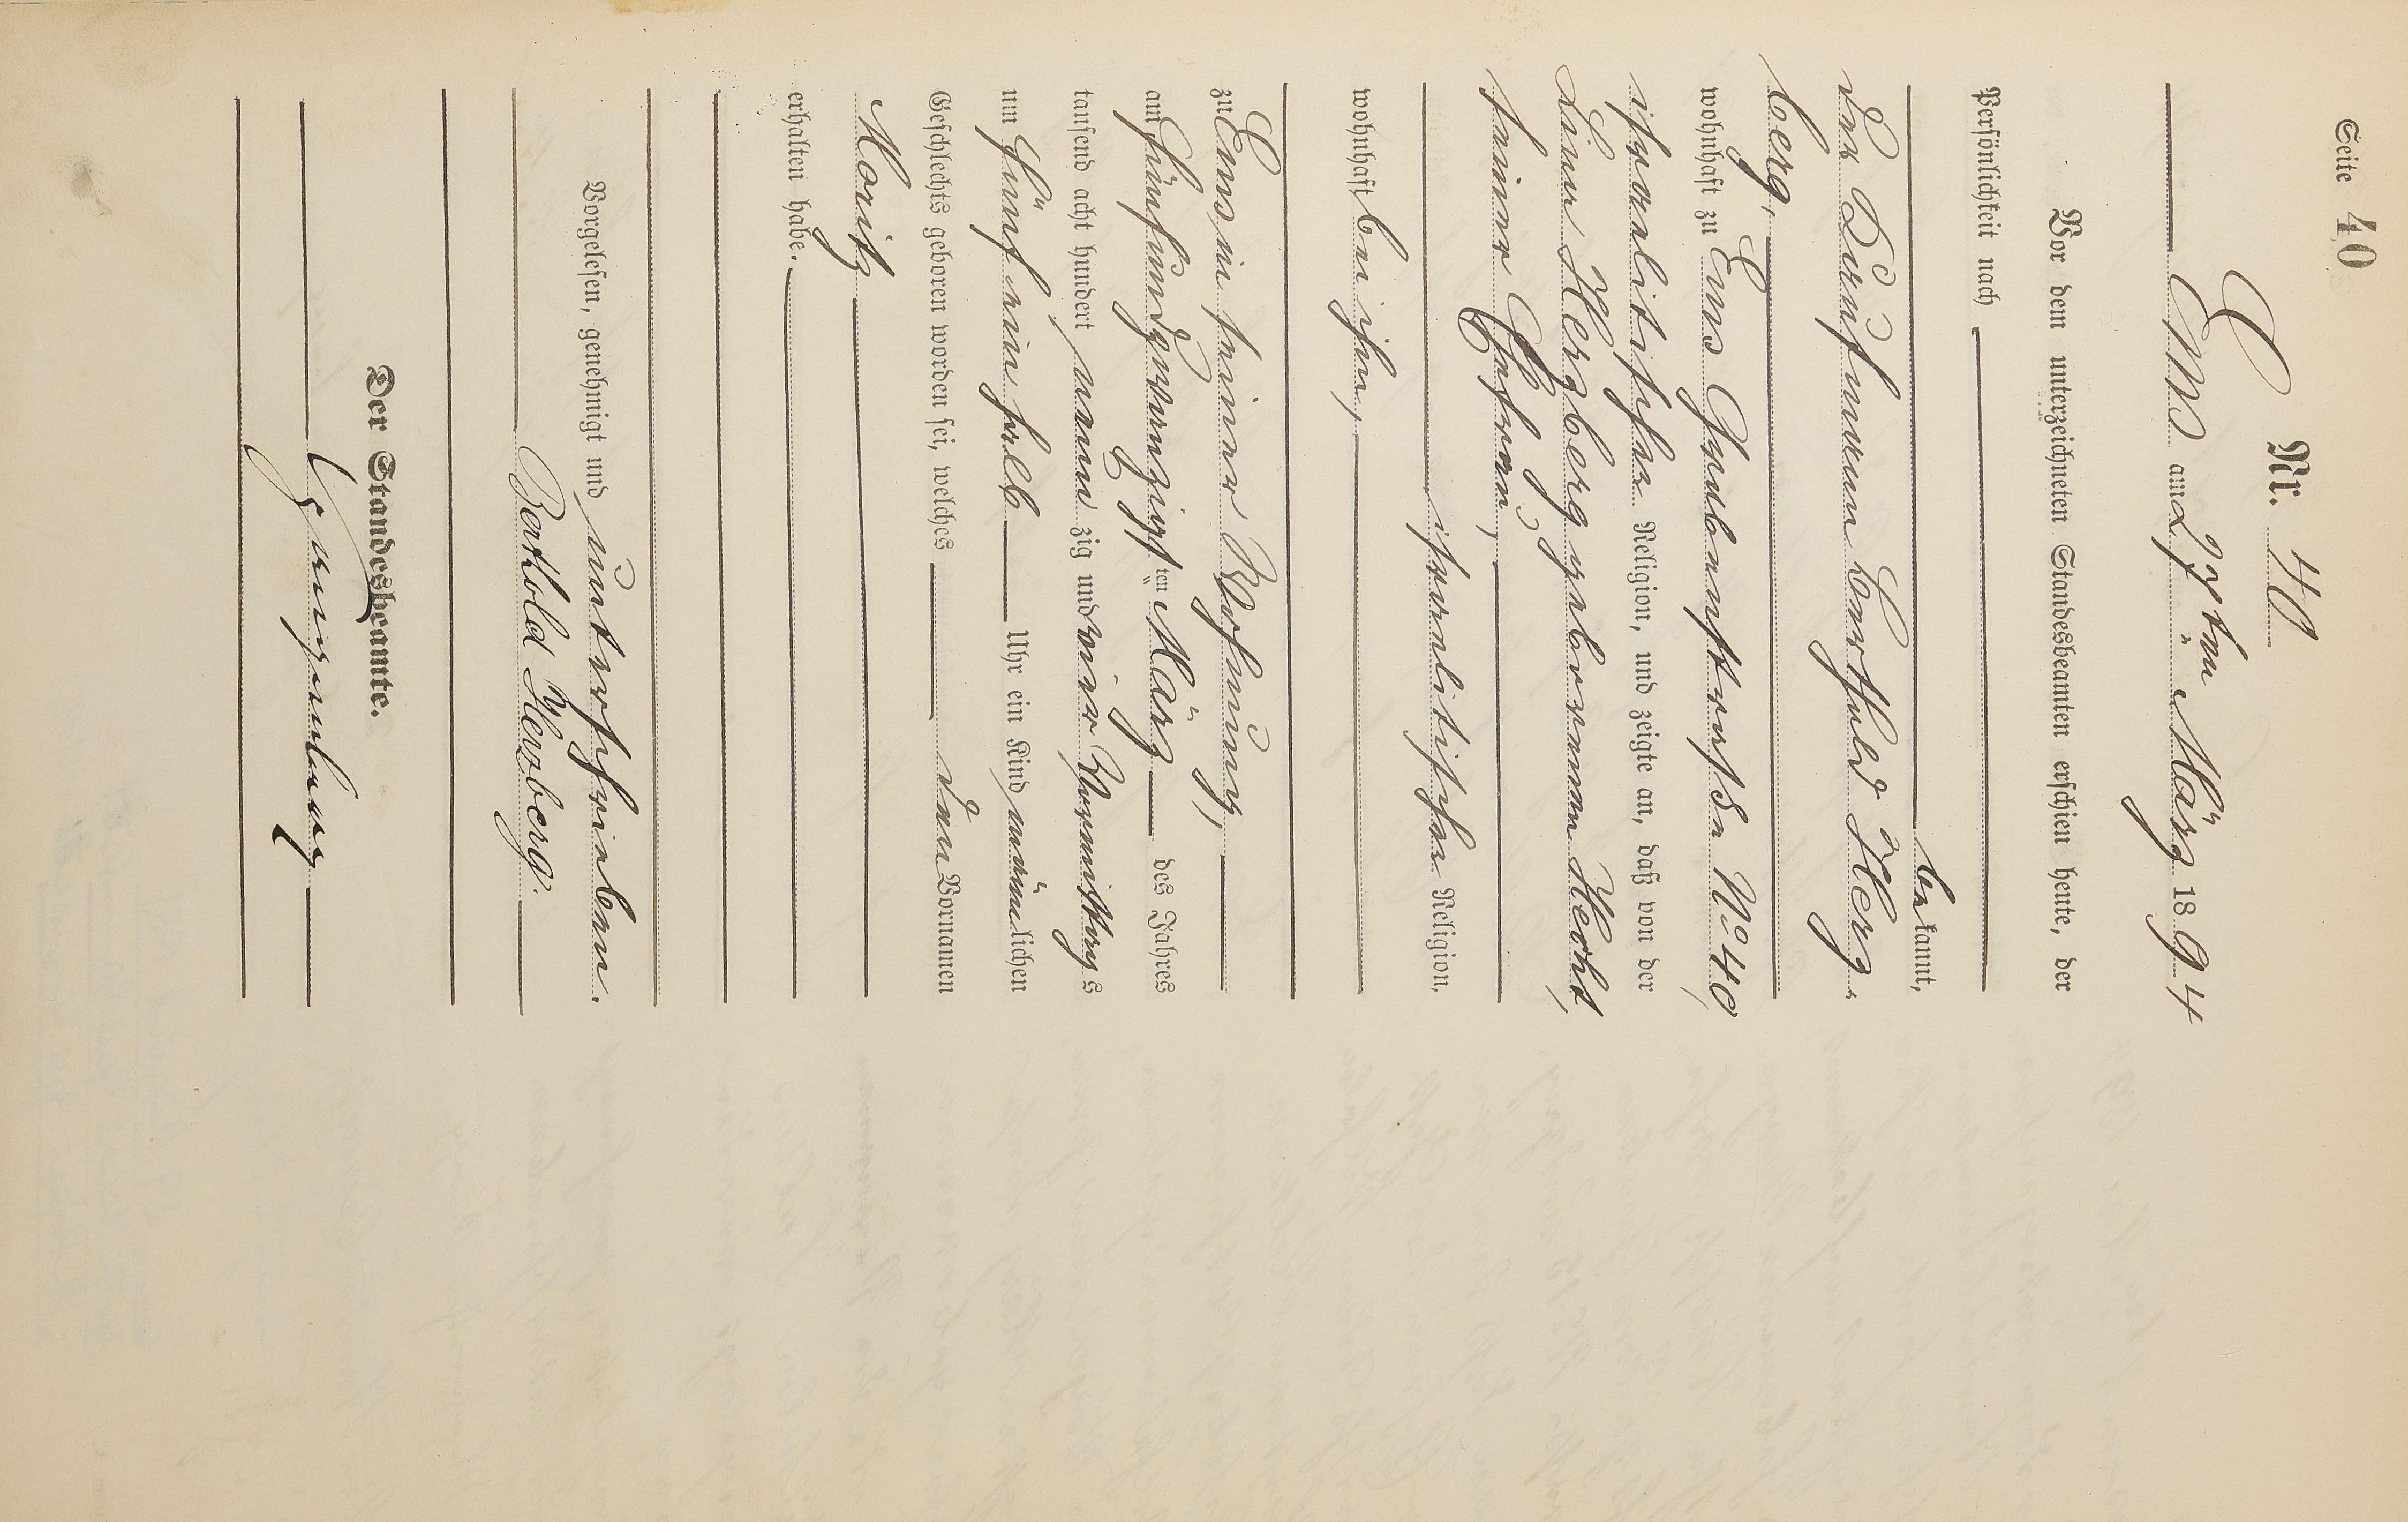 Seite 40
Nr. 40
Ems am 27ten März 1894
Vor dem unterzeichneten Standesbeamten erschien heute, der
Persönlichkeit nach
bekannt,
der Kaufmann Berthold Herz-
berg,
wohnhaft zu Ems Grabenstraße No 40,
israelitischer Religion, und zeigte an, daß von der
Lina Herzberg geborenen Hecht,
seiner Ehefrau,
israelitischer Religion,
wohnhaft bei ihm,
zu Ems in seiner Wohnung,
am fünfundzwanzigsten März des Jahres
tausend acht hundert neunzig und vier Vormittags
um fünf ein halb Uhr ein Kind männlichen
Geschlechts geboren worden sei, welches den Vornamen
Moritz
erhalten habe.
Vorgelesen, genehmigt und unterschrieben.
Berthold Herzberg.
Der Standesbeamte.